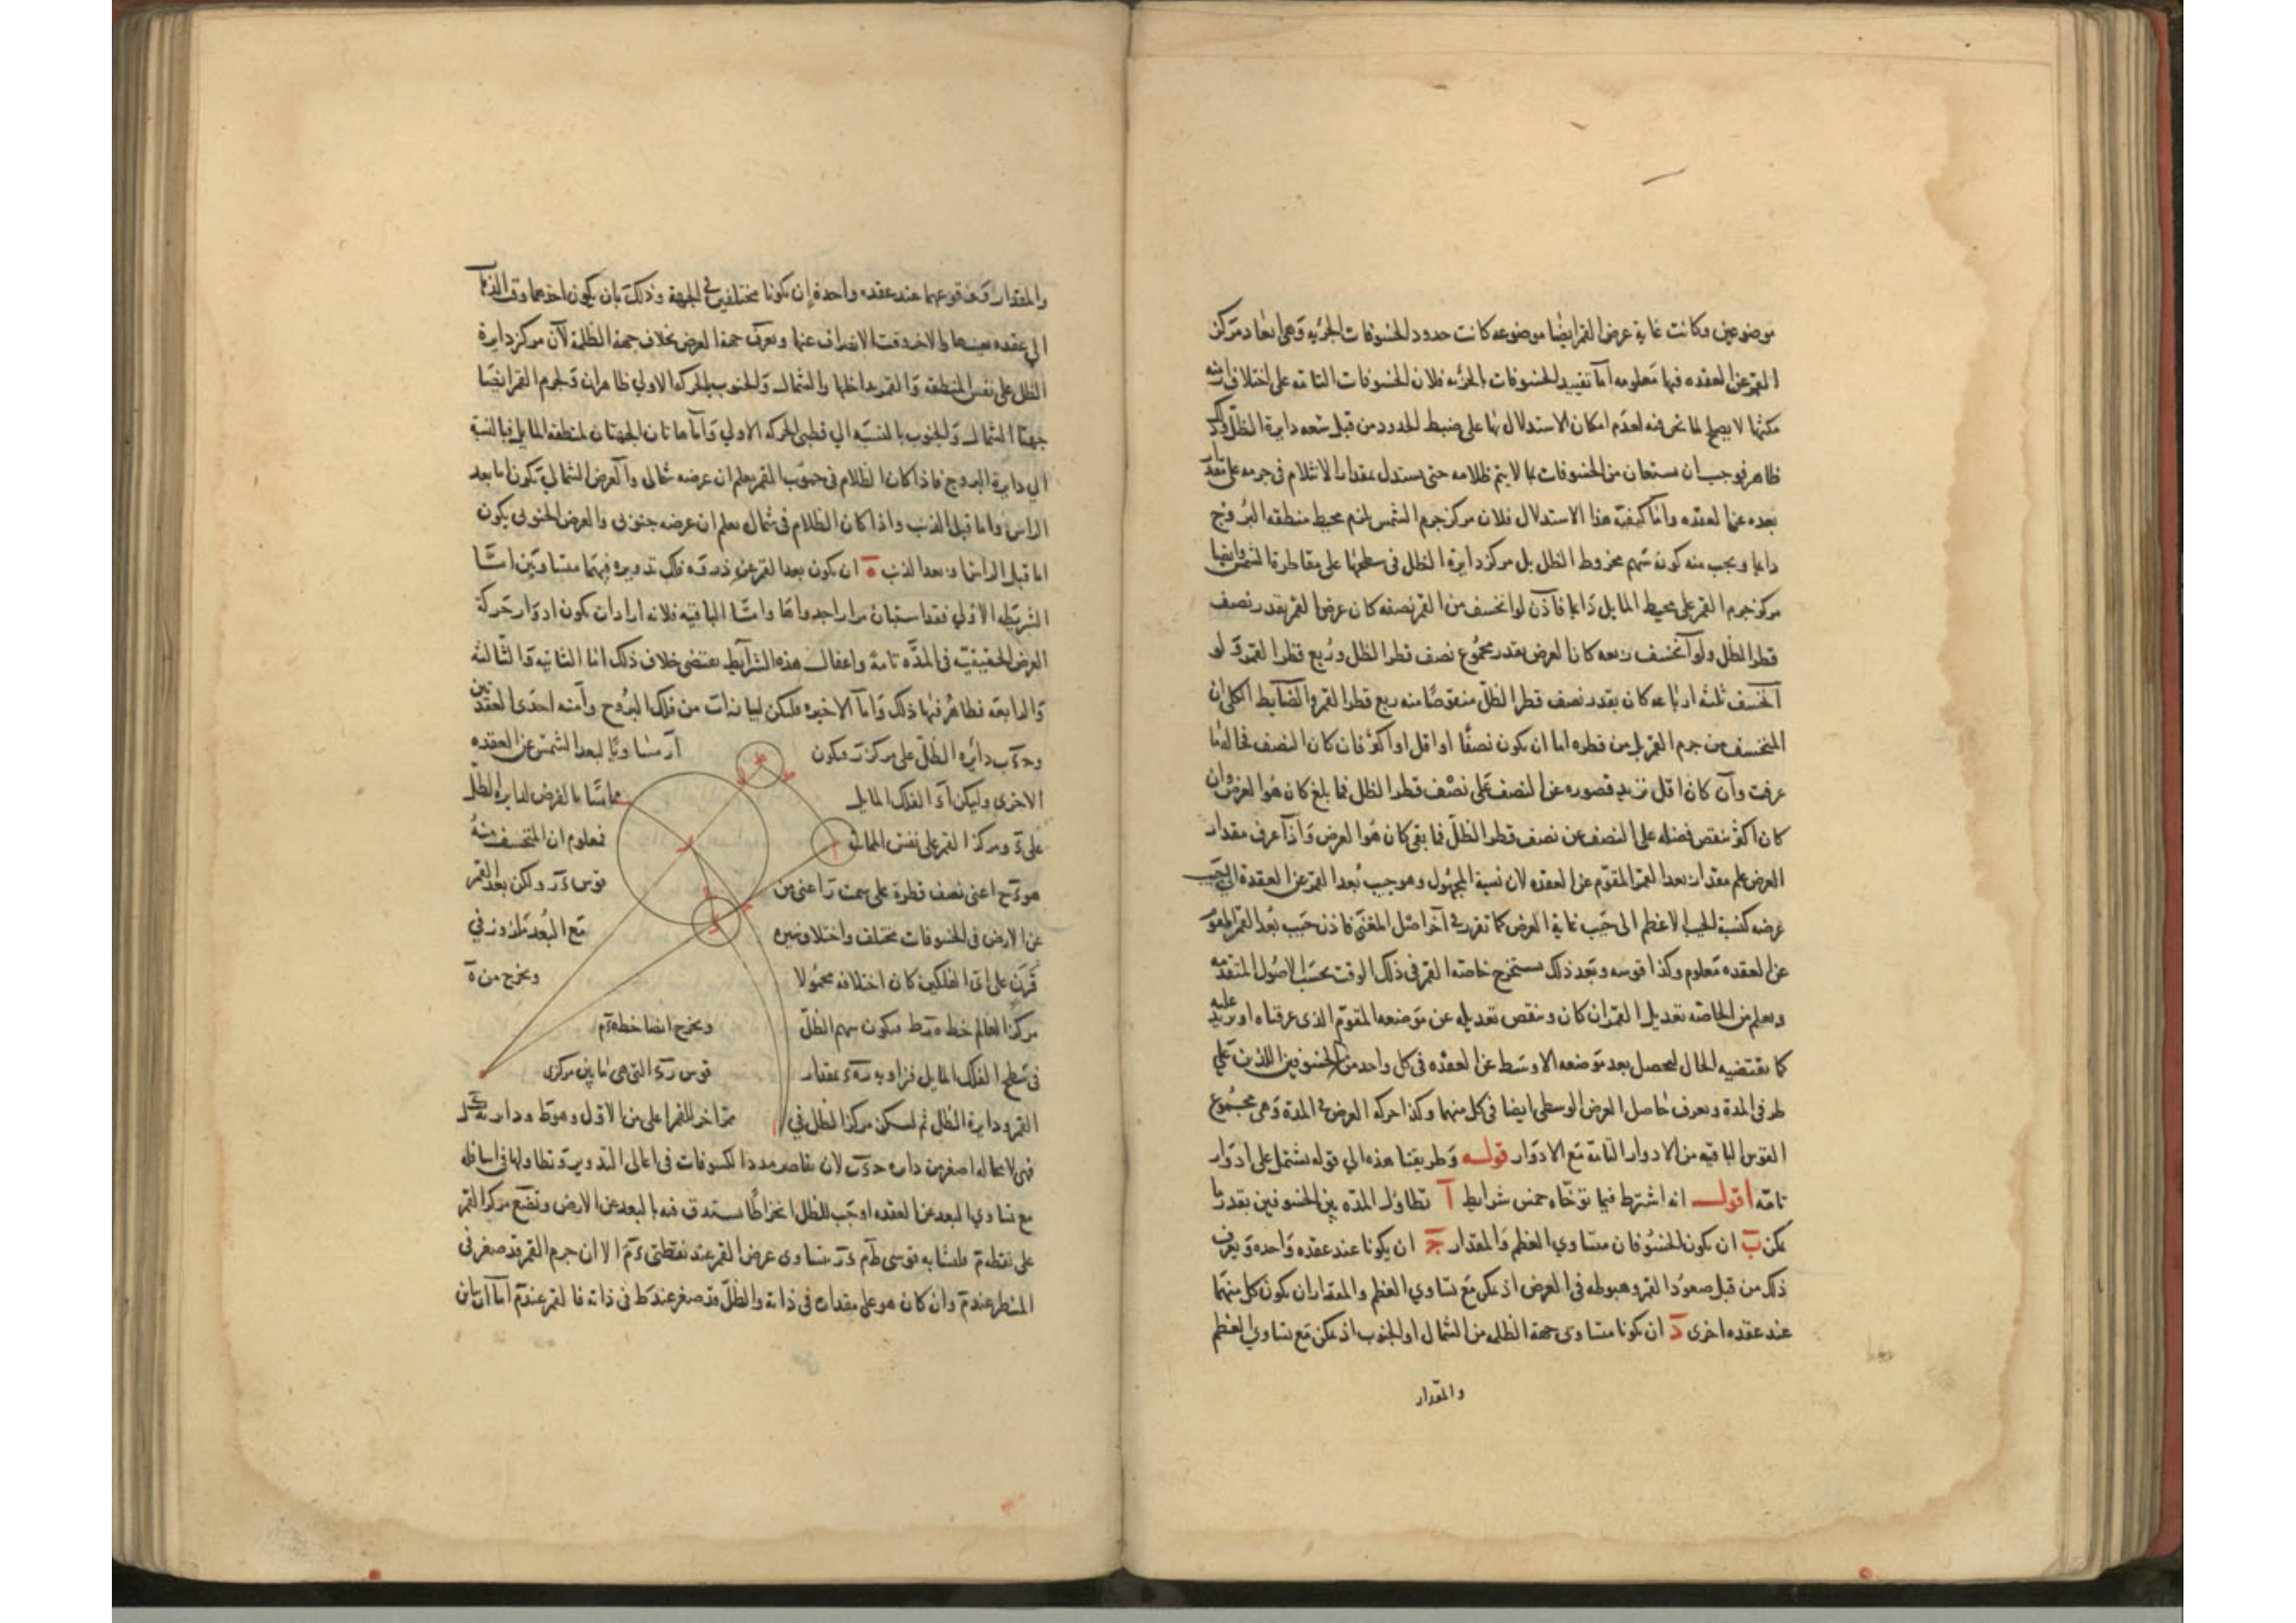 موضوعين وكانت غاية عرض القمر ايضا موضوعه كانت حدود الخسوفات الجزئيه وهى ابعاد مركز
القمر عن العقده فيها معلومه اما تقييد الخسوفات بالجزئيه فلان الخسوفات التامه على اختلاف ازمنه
مكثها لا يصلح لما نحن فيه لعدم امكان الاستدلال بها على ضبط الحدود من قبل سعه دايرة الظل وذلك
ظاهر فوجب ان يستعان من الخسوفات بما لا يتم ظلامه حتى يستدل بمقدار الانثلام فى جرمه على
بعده عن العقده واما كيفية هذا الاستدلال فلان مركز جرم الشمس لزم محيط منطقه البروج
دايما ويجب منه كون سهم مخروط الظل بل مركز دايرة الظل فى سطحها على مقاطرة الشمس وايضا
مركز جرم القمر على محيط المايل دايما فاذن لو انخسف من القمر نصفه كان عرض القمر بقدر نصف
قطر الظل ولو انخسف ربعه كان العرض بقدر مجموع نصف قطر الظل وربع قطر القمر ولو
انخسف ثلثه ارباعه كان بقدر نصف قطر الظل منقوصا منه ربع قطر القمر والضابط الكلى ان
المنخسف من جرم القمر بل من قطره اما ان يكون نصفا او اقل او اكثر فان كان النصف فحاله ما
عرفت وان كان اقل نزيد قصوره عن النصف على نصف قطر الظل فما بلغ كان هو العرض وان
كان اكثر ننقص فضله على النصف من نصف قطر الظل فما بقى كان هو العرض واذا عرف مقدار
العرض علم مقدار بعد القمر المقوم عن العقده لان نسبة المجهول وهو جيب بعد القمر عن العقدة الى جيب
عرضه كنسبة الجيب الاعظم الى جيب غاية العرض كما تقرر فى آخر اصل المغنى فاذن جيب بعد القمر المقوم
عن العقده معلوم وكذا قوسه وبعد ذلك يستخرج خاصه القمر فى ذلك الوقت بحسب الاصول المتقدمه
ويعلم من الخاصه تعديل القمر ان كان وينقص تعديله عن موضعه المقوم الذى عرفناه او يزيد عليه
كما يقتضيه الحال ليحصل بعد موضعه الاوسط عن العقده فى كل واحد من الخسوفين اللذين على
طرفى المدة ويعرف حاصل العرض الوسطى ايضا فى كل منهما وكذا حركه العرض فى المدة وهى مجموع
القوس الباقيه من الادوار التامه مع الادوار قوله وطريقنا هذه الى قوله يشتمل على ادوار
تامه اقول انه اشترط فيما توخاه خمس شرايط آ تطاول المده بين الخسوفين بقدر ما
يمكن ب ان يكون الخسوفان متساوى العظم والمقدار ج ان يكونا عند عقده واحده ويعرف
ذلك من قبل صعود القمر وهبوطه فى العرض اذ يمكن مع تساوى العظم والمقدار ان يكون كل منهما
عند عقده اخرى د ان يكونا متساوى جهة الظله من الشمال او الجنوب اذ يمكن مع تساوى العظم
والمقدار
والمقدار ووقوعهما عند عقده واحدة ان يكونا مختلفين فى الجهة وذلك بان يكون احدهما وقت الذهاب
الى عقده بعينها والاخر وقت الانصراف عنها ويعرف جهة العرض بخلاف جهة الظلمة لان مركز دايرة
الظل على نفس المنطقه والقمر يداخلها والشمال والجنوب بالحركه الاولى ظاهران ولجرم القمر ايضا
جهتا الشمال والجنوب بالنسبه الى قطبى الحركه الاولى واما هاتان الجهتان لمنطقه المايل فبالنسبة
الى دايرة البروج فاذا كان الظلام فى جنوب القمر يعلم ان عرضه شمالى والعرض الشمالى يكون اما بعد
الراس واما قبل الذنب واذا كان الظلام فى شماله يعلم ان عرضه جنوبى والعرض الجنوبى يكون
اما قبل الراس واما بعد الذنب ه ان يكون بعد القمر عن ذروه فلك تدويره فيهما متساويين اما
الشريطه الاولى فقد استبان مرارا جدواها واما الباقيه فلانه اراد ان يكون ادوار حركة
العرض الحقيقيه فى المده تامة واغفال هذه الشرايط يقتضى خلاف ذلك اما الثانيه والثالثه
والرابعه فظاهر فيها ذلك واما الاخيره فليكن لبيانها اب من فلك البروج وآمنه احدى العقدتين
وح‌ء‌ب دائره الظل على مركز ز ويكون آر مساويا لبعد الشمس عن العقده
الاخرى وليكن آء الفلك المايل مماسا بالفرض لدايرة الظل
على ء ومركز القمر على نفس المماسة فمعلوم ان المنخسف منه
هو ءح اعنى نصف قطره على سمت ز اعنى من قوس ءز ولكن بعد القمر
عن الارض فى الخسوفات مختلف واختلاف مع البعد تدويرى
قرن على اى الفلكين كان اختلافه محمولا ويخرج من ه
مركز العالم خط ه‌ز‌ط فيكون سهم الظل ويخرج ايضا خط ه‌ء‌م
فى سطح الفلك المايل فزاويه ز‌ه‌ء بمقدار قوس زء التى هى ما بين مركزى
القمر ودايرة الظل ثم ليكن مركز الظل فى ممر آخر للقمر اعلى من الاول وهو ط ودايرته كل
فهى لا محاله اصغر من دايره ح‌ء‌ب لان تقاصر مدد الكسوفات فى اعالى التدوير وتطاولها فى اسافله
مع تساوى البعد عن العقده اوجب للظل انخراطا يستدق فيه بالبعد عن الارض ونضع مركز القمر
على نقطه م فلتشابه قوسى ط‌م ءز يتساوى عرض القمر عند نقطتى ء م الا ان جرم القمر قد صغر فى
المنظر عند م وان كان هو على مقداره فى ذاته والظل قد صغر عند ط فى ذاته فالقمر عند م اما ان ياين